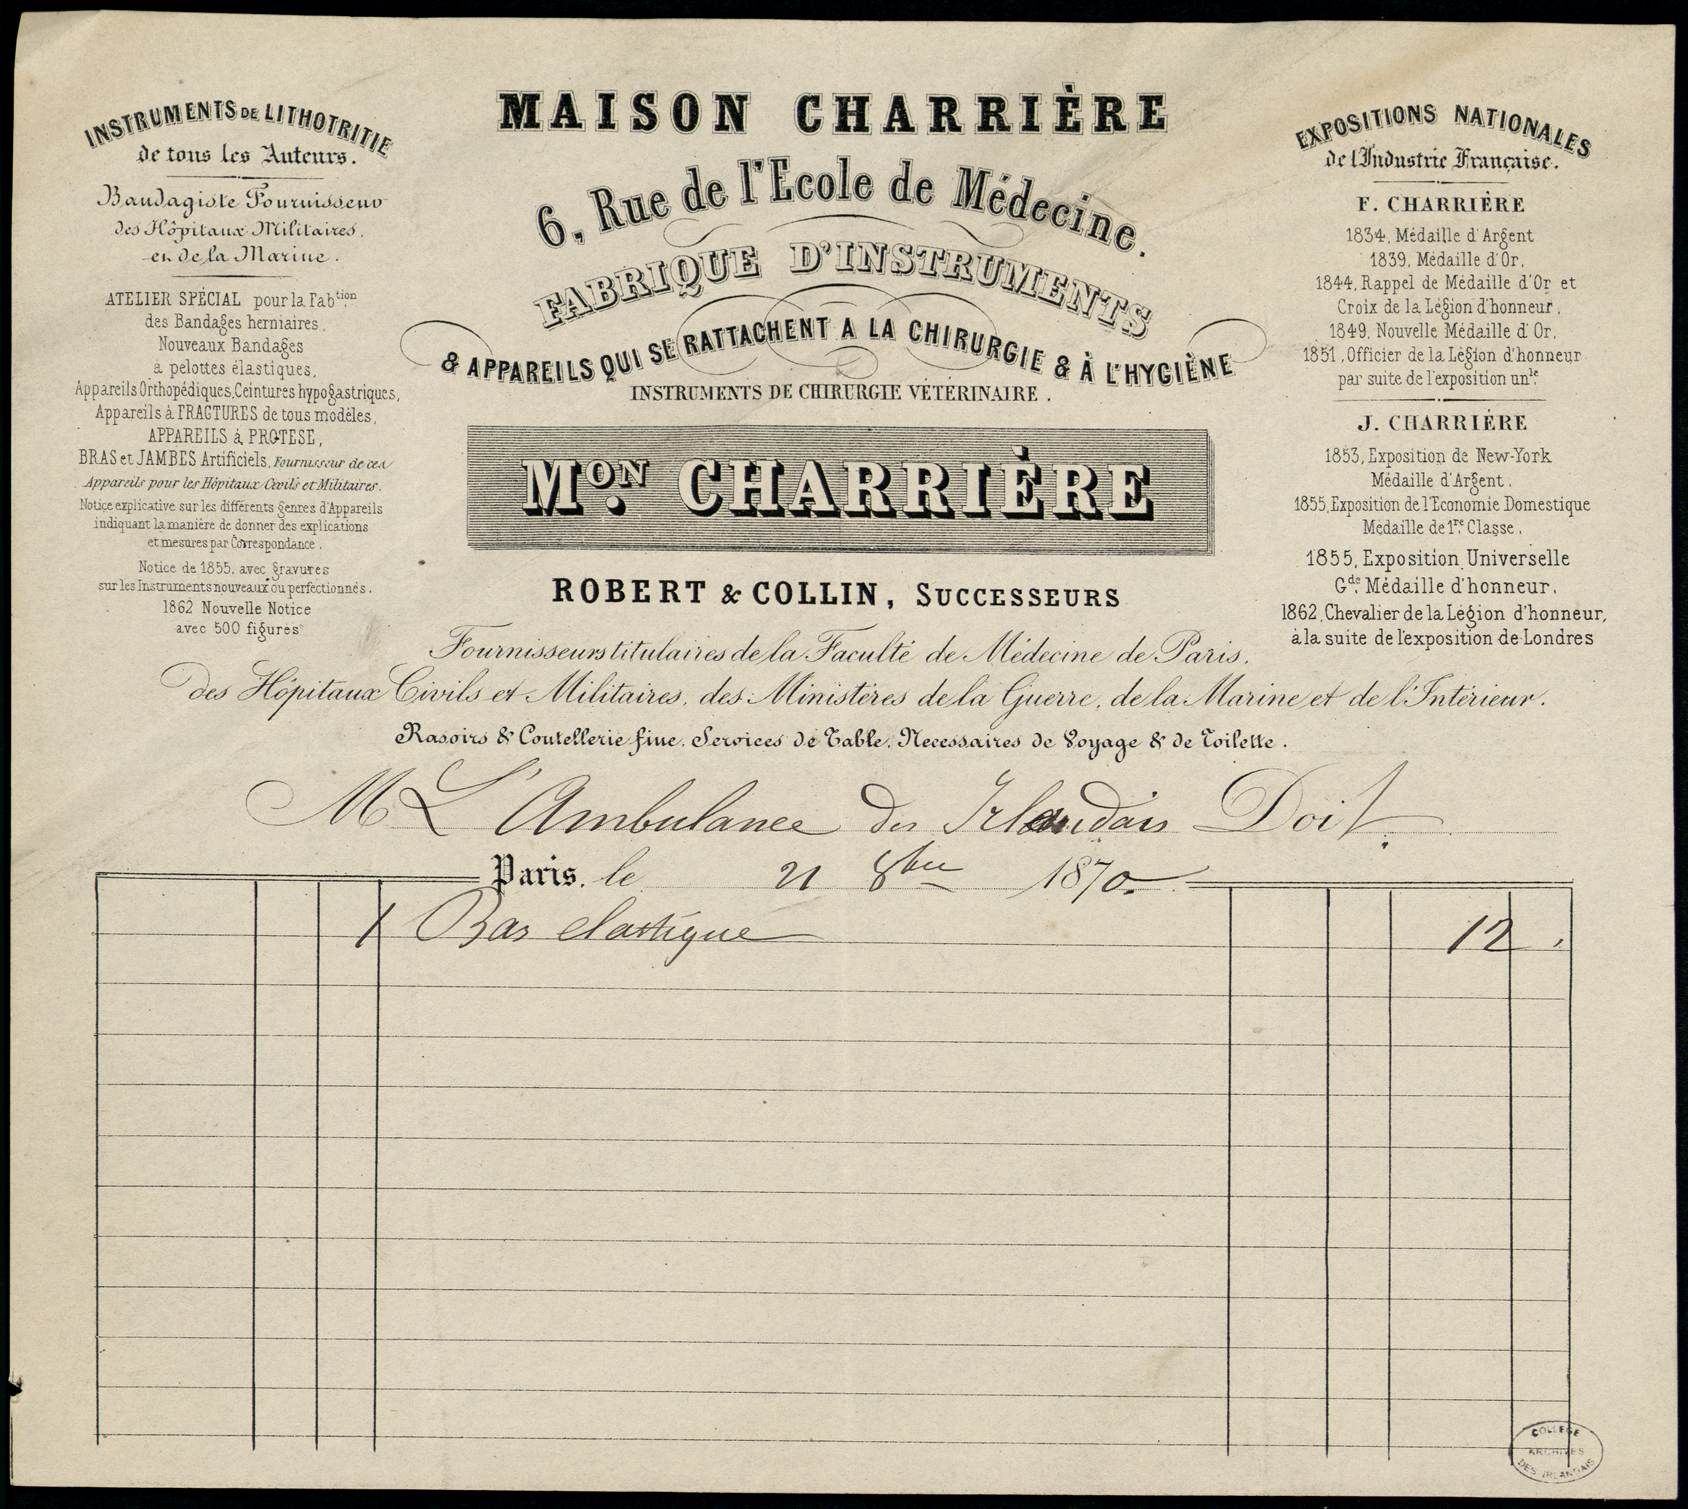 INSTRUMENTS DE LITHOTRITIE
de tous les Auteurs.
Bandagiste Fournisseur
des Hôpitaux Militaires,
et de la Marine.
ATELIER SPÉCIAL pour la Fabtion
des Bandages herniaires,
Nouveaux Bandages
à pelottes élastiques,
Appareils Orthopédiques, Ceintures hypogastriques,
Appareils à FRACTURES de tous modèles,
APPAREILS à PROTESE,
BRAS et JAMBES Artificiels, Fournisseur de ces
Appareils pour les Hôpitaux Civils et Militaires.
Notice explicative sur les différents genres d'Appareils
indiquant la manière de donner des explications
et mesures par Correspondance.
Notice de 1855, avec gravures
sur les Instruments nouveaux ou perfectionnés.
1862 Nouvelle Notice
avec 500 figures
MAISON CHARRIÈRE
6, Rue de l'Ecole de Médecine.
FABRIQUE D'INSTRUMENTS
& APPAREILS QUI SE RATTACHENT A LA CHIRURGIE & À L'HYGIÈNE
INSTRUMENTS DE CHIRURGIE VÉTÉRINAIRE.
MON. CHARRIÈRE
ROBERT & COLLIN, SUCCESSEURS
EXPOSITIONS NATIONALES
de l'Industrie Française.
F. CHARRIÈRE
1834, Médaille d'Argent
1839, Médaille d'Or,
1844, Rappel de Médaille d'Or et
Croix de la Légion d'honneur,
1849, Nouvelle Médaille d'Or,
1851, Officier de la Légion d'honneur
par suite de l'exposition unle.
J. CHARRIÈRE
1853, Exposition de New-York
Médaille d'Argent.
1855, Exposition de l'Economie Domestique
Médaille de 1re Classe.
1855, Exposition Universelle
Gde. Médaille d'honneur.
1862, Chevalier de la Légion d'honneur,
à la suite de l'exposition de Londres
Fournisseurs titulaires de la Faculté de Médecine de Paris,
des Hôpitaux Civils et Militaires, des Ministères de la Guerre, de la Marine et de l'Intérieur.
Rasoirs & Coutellerie fine, Services de Table, Necessaires de Voyage & de Toilette.
M L'Ambulance des Irlandais Doit
Paris, le 21 8bre 1870
1 Bas elastique 12 .
COLLEGE
ARCHIVES
DES IRLANDAIS